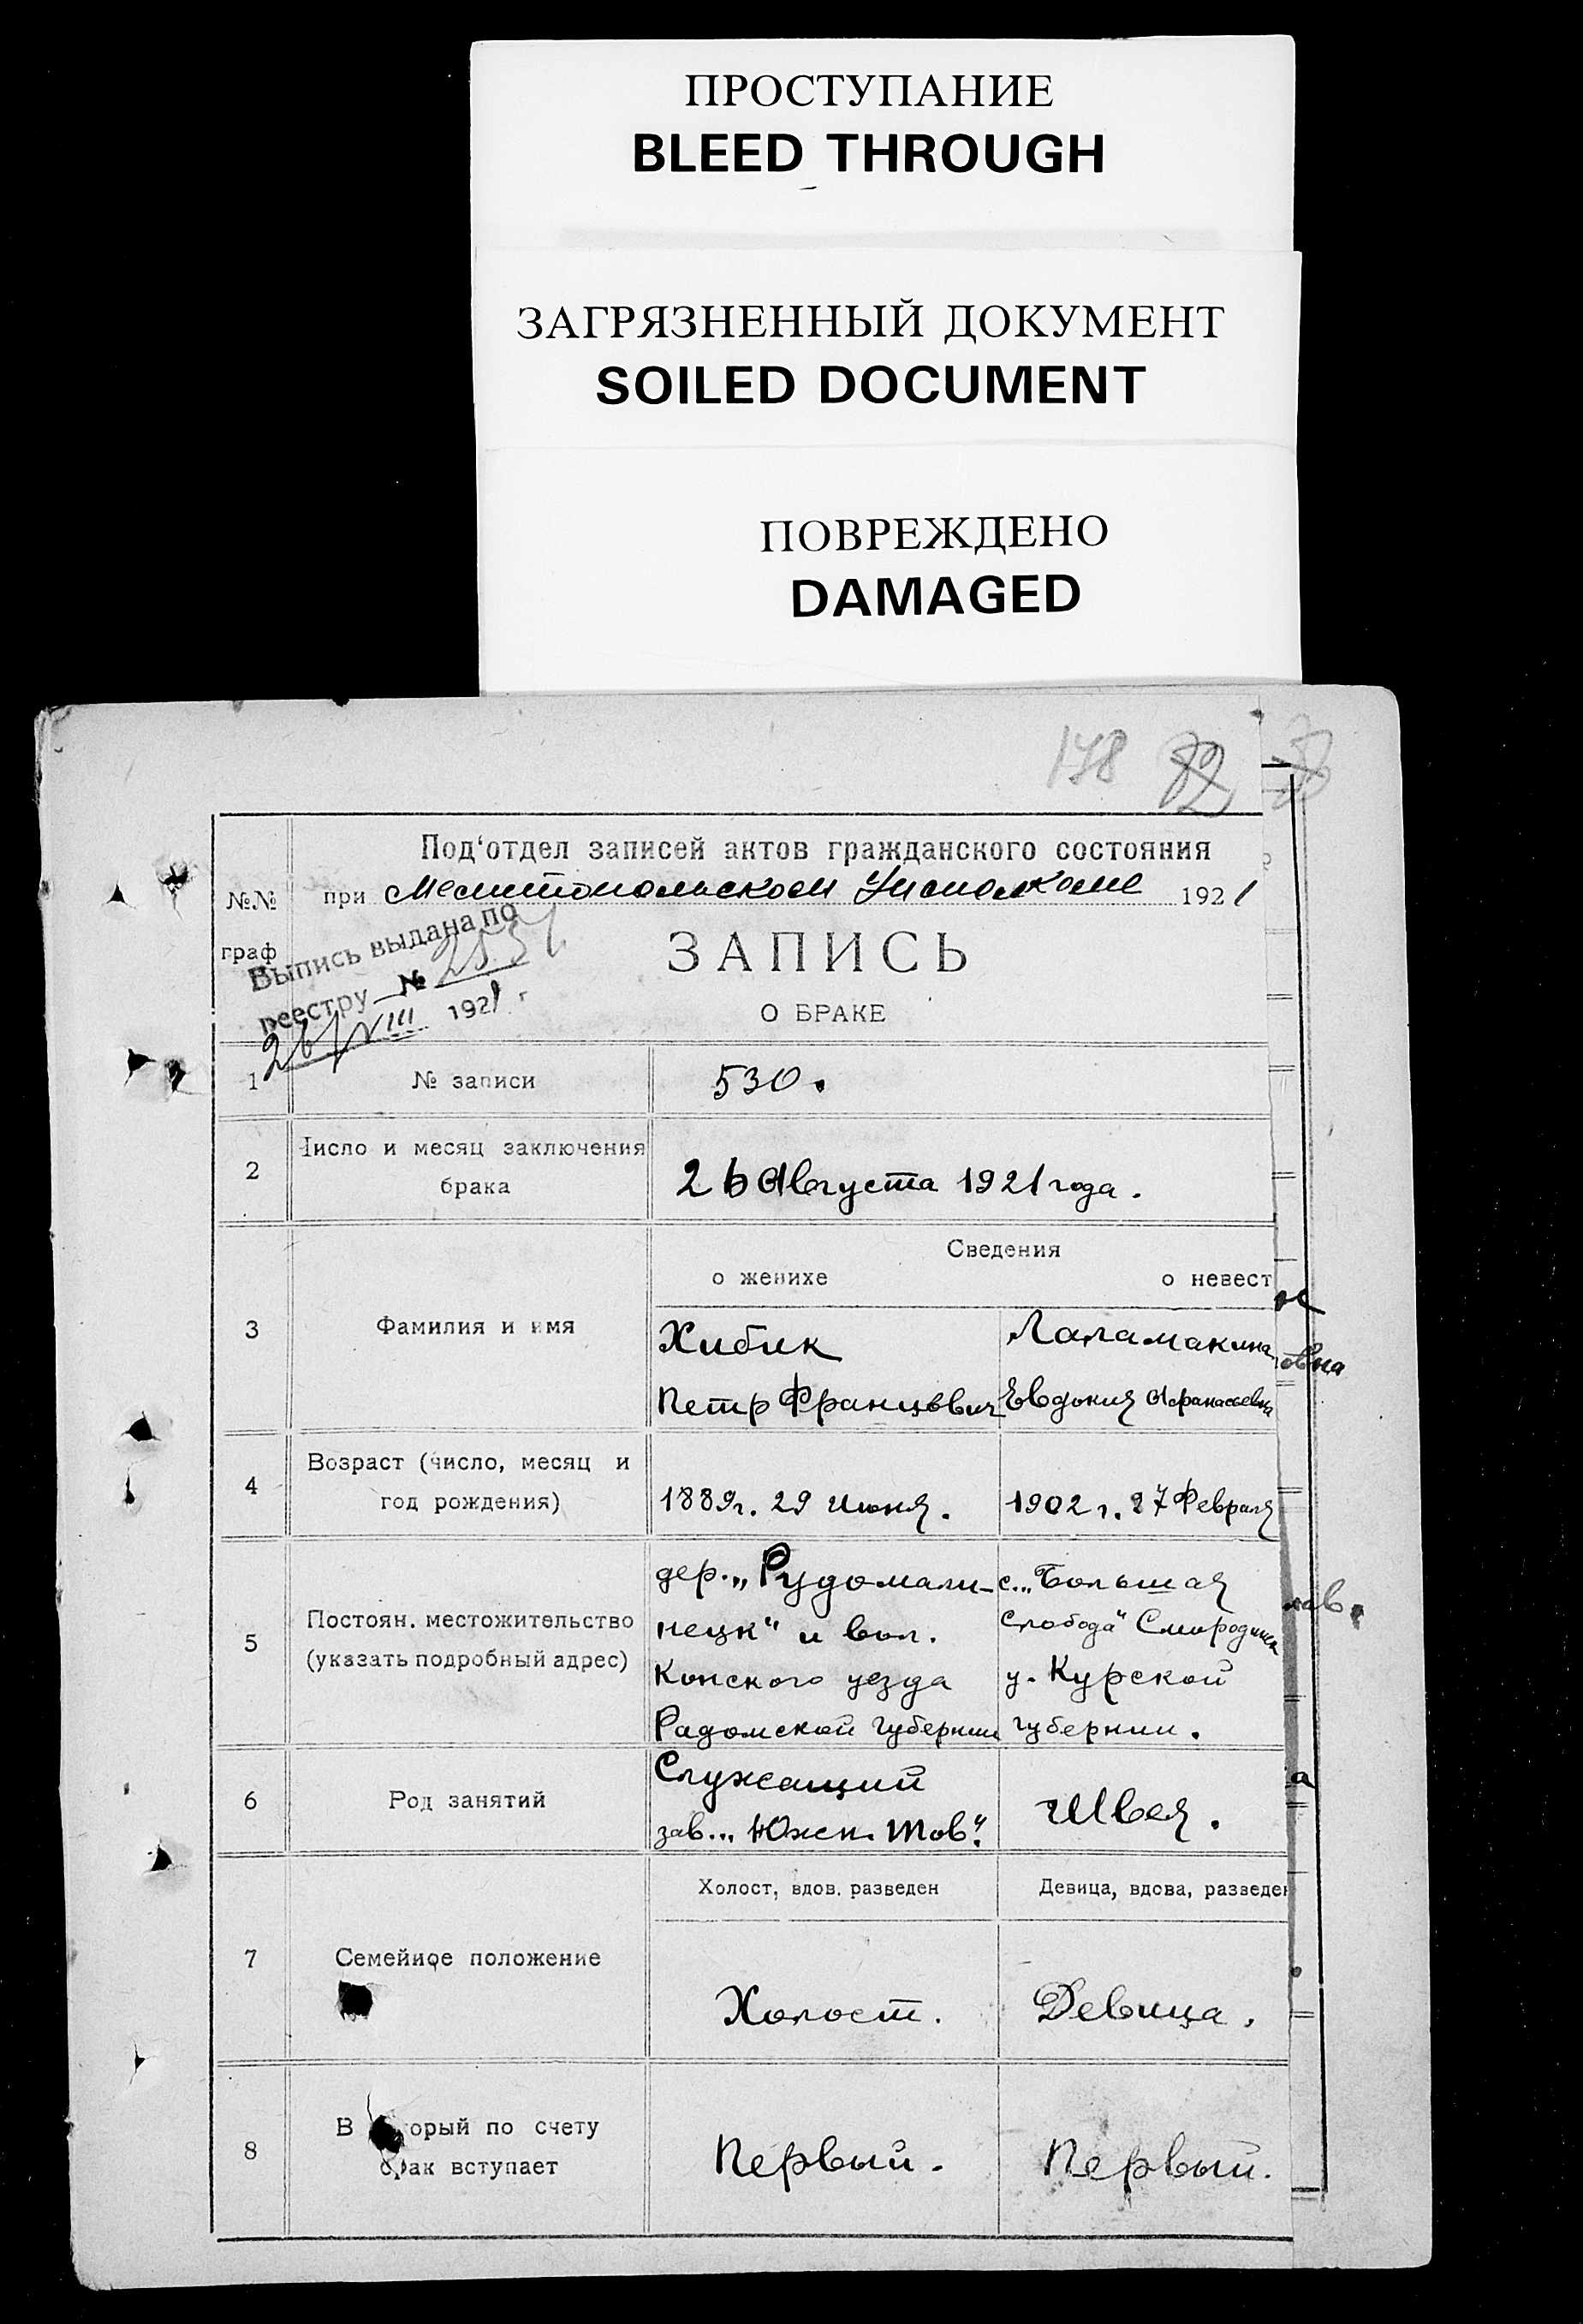 ПРОСТУПАНИЕ
BLEED THROUGH
ЗАГРЯЗНЕННЫЙ ДОКУМЕНТ
SOILED DOCUMENT
ПОВРЕЖДЕНО
DAMAGED
178 82
№№ граф
Под‘отдел записей актов гражданского состояния
при Мелитопольском Уисполкоме 1921
Выпись выдана по
реестру №
26/VIII 1921 г.
ЗАПИСЬ
О БРАКЕ
1 № записи 530.
2 Число и месяц заключения
брака
26 Августа 1921 года.
Сведения
о женихе о невест
3 Фамилия и имя
Хибик Лаламакина
Петр Францевич Евдокия Афанасьевна
4 Возраст (число, месяц и
год рождения)
1889г. 29 июня. 1902 г. 27 Февраля
5 Постоян. местожительство
(указать подробный адрес)
дер. „Рудомали- с. „Большая
нецк“ и вол. Слобода“
Конского уезда у. Курской
Радомской губернии губернии.
6 Род занятий
Служащий Швея.
зав. „Южн. Тов“.
7 Семейное положение
Холост, вдов. разведен Девица, вдова, разведен
Холост. Девица.
8 В орый по счету
брак вступает
Первый. Первый.